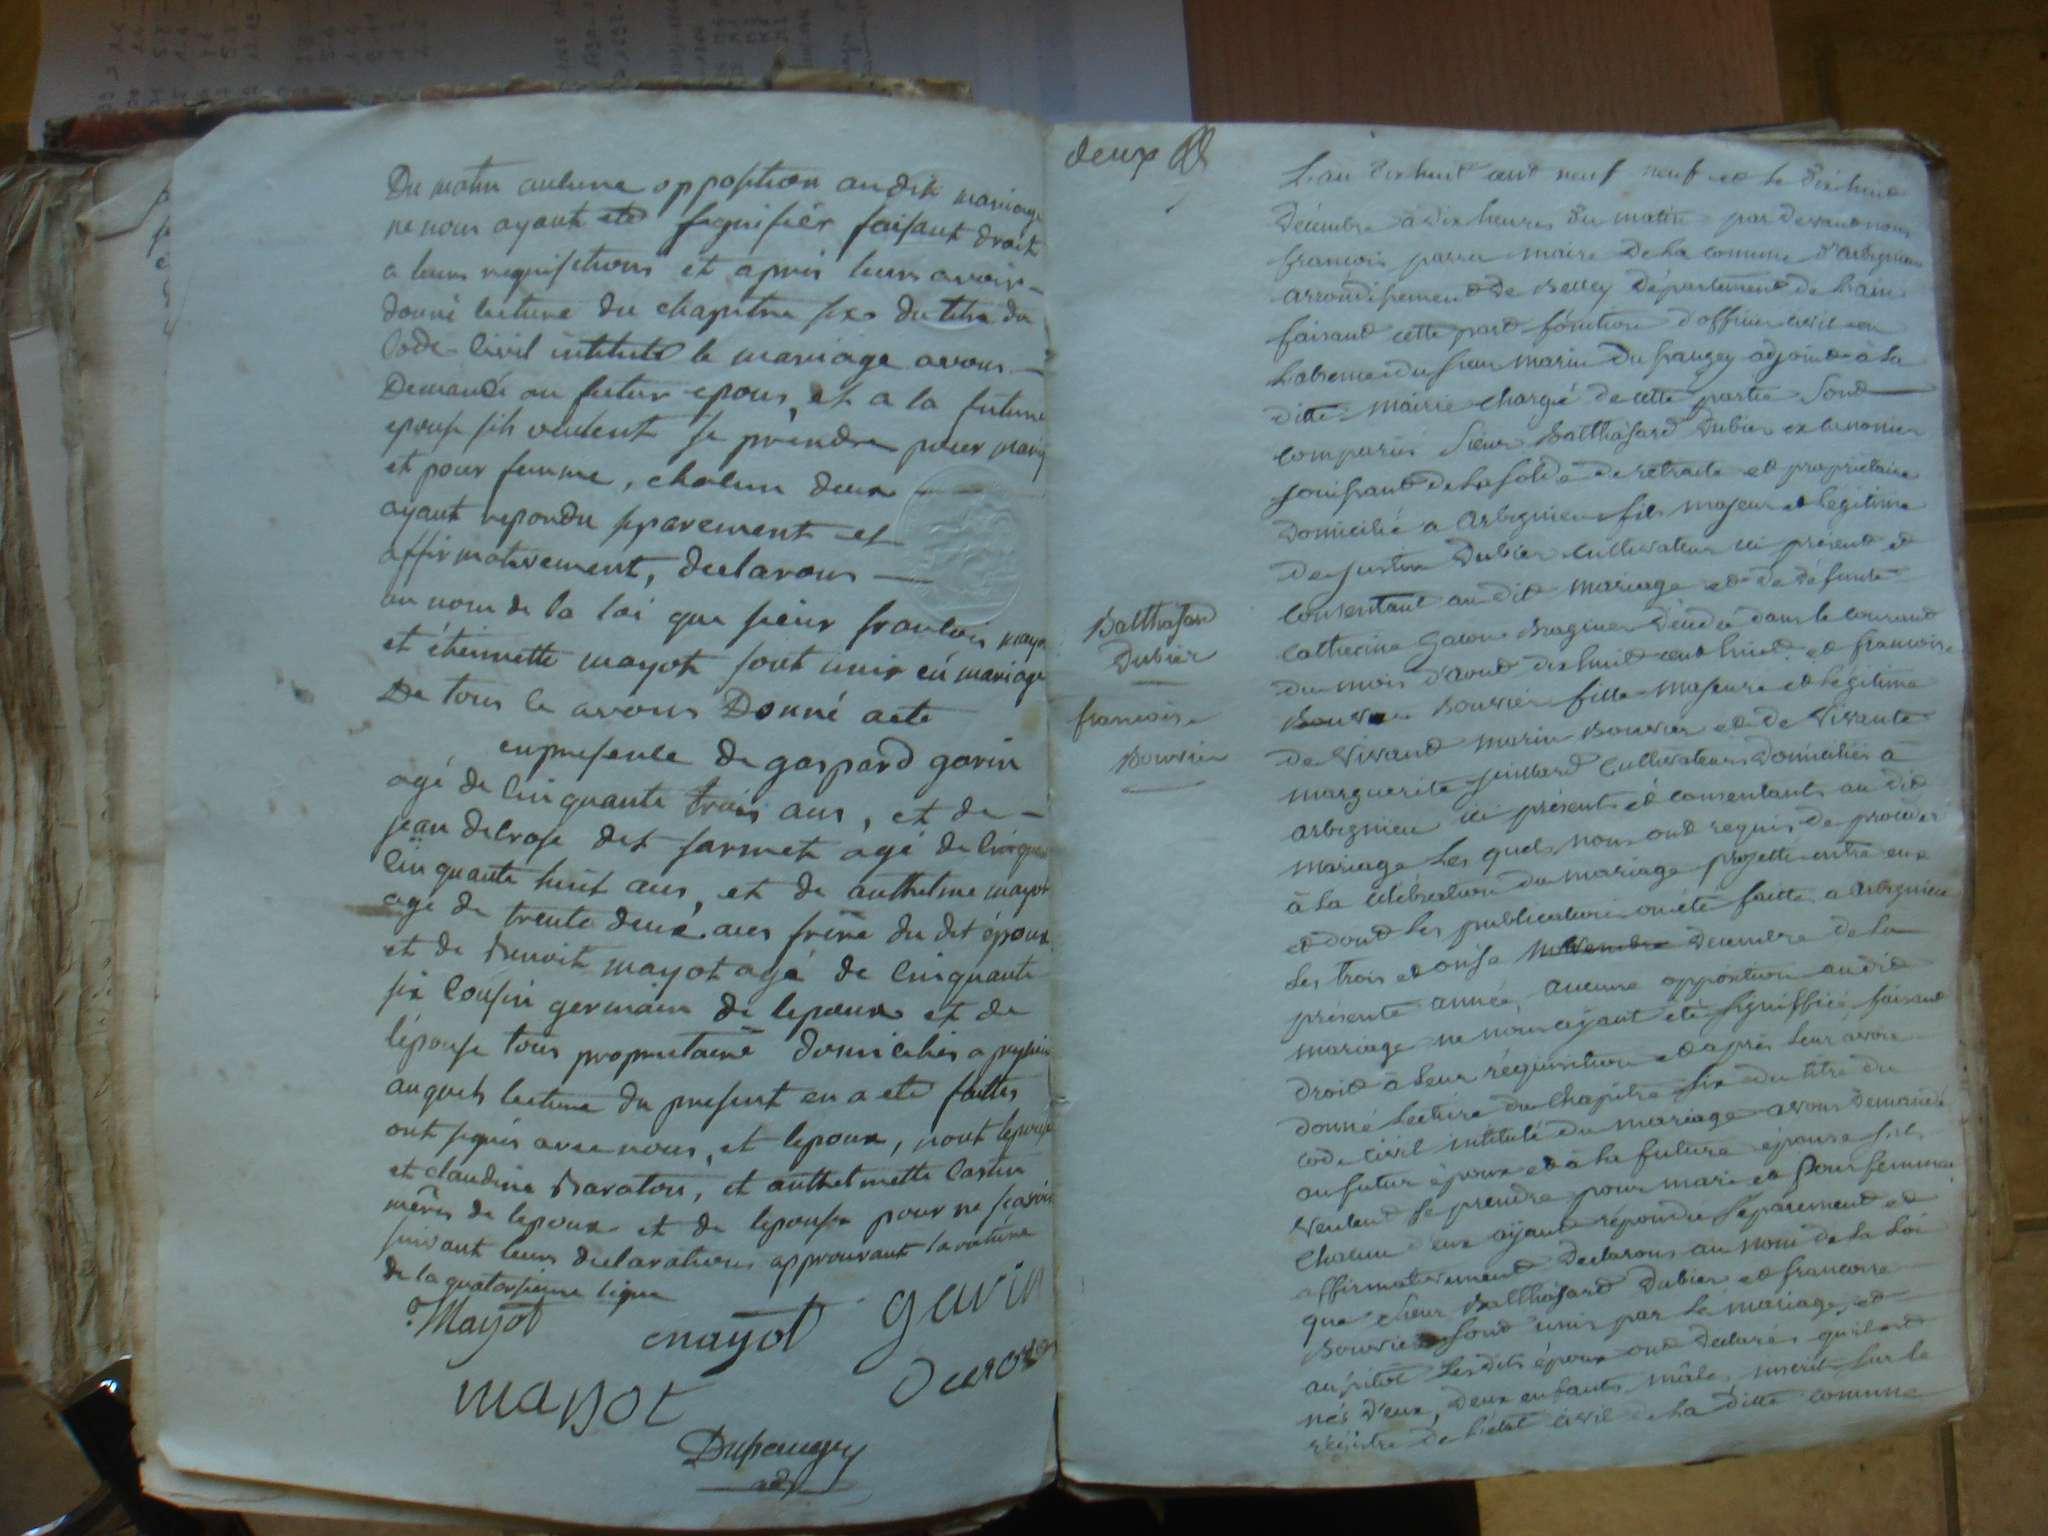 Du matin aucune opposition audit mariage
ne nous ayant eté signifiér faisant droit
a leurs requisitions et aprés leurs avoir
donné lecture du chapitre six du titre du
Code Civil intitulé le mariage avons
Demandé au futur epoux, et a la future
epouse sils veulent se prendre pour mary
et pour femme, chalun deux
ayant repondu separement et
affirmativement, declarons
au nom de la loi que sieur francois mayot
et étiennette mayot sont unis en mariage
De tous ce avons Donné acte
en presence de gaspard gavin
agé de Cinquante trois ans, et de
jean delrose dit farmet agé de
Cinquante huit ans, et de anthelme mayot
agé de trente deux ans frère du dit époux
et de Benoit mayot agé de Cinquante
six Cousin germain de lepoux et de
lépouse tous proprietaire domiciliés a
auquels lecture du present en a eté faittes
ont signés avec nous, et lepoux, nont lepouse
et claudine Baraton, et anthelmette Castin
mères de lepoux et de lepouse pour ne scavoir
suivant leurs declarations approuvant la rature
de la quatorsieme ligne
Mayot
mayot
gavin
mayot
Dufraugey
adj
deux
L'an dix huit cent neuf et le dixhuit
Décembre à dix heures du matin par devant nous
francois parra maire de la comune d'arbignieu
arrondissement de Belley Département de l'ain
faisant cette part fonction d'officier civil en
l'absence du sieur marin Dufraugey adjoint à la
ditte mairie chargé de cette partie Sont
comparus sieur Balthasard Dubier ex canonier
jouissant de la solde de retraite et proprietaire
Domicilié a arbignieu fils majeur et légitime
de Dubier Cultivateur ici présent et
consentant au dit mariage et de défunte
Catherine Décédé dans le courant
du mois d'aout dixhuit cent huit et francoise
Bouvier fille majeure et légitime
de vivant marin Bouvier et de vivante
marguerite juillard Cultivateurs Domiciliés à
arbignieu ici présents et consentants au dit
mariage Les quels nous ont requis de procéder
à la célébration du mariage projetté entre eux
et dont les publications ont été faitte a arbignieu
les trois et onse novembre Décembre de la
présente année, aucune opposition au dit
mariage ne nous ayant été signiffiée faisant
droit à leur réquisition et après leur avoir
donné Lecture du Chapitre six du titre du
code civil intitulé du mariage avons Demandé
au futur époux et à la future épouse s'ils
veulent se prendre pour mari et pour femme
Chacun d'eux ayant répondu séparement et
affirmativement Declarons au nom de la Loi
que sieur Balthasard Dubier et francoise
Bouvier sont unis par le mariage, et
aussitôt Lesdits époux ont declarés qu'il est
nés d'eux, Deux enfants mâles inscrit sur le
régistre de l'état civil de la ditte comune
Balthasard
Dubier
francoise
Bouvier